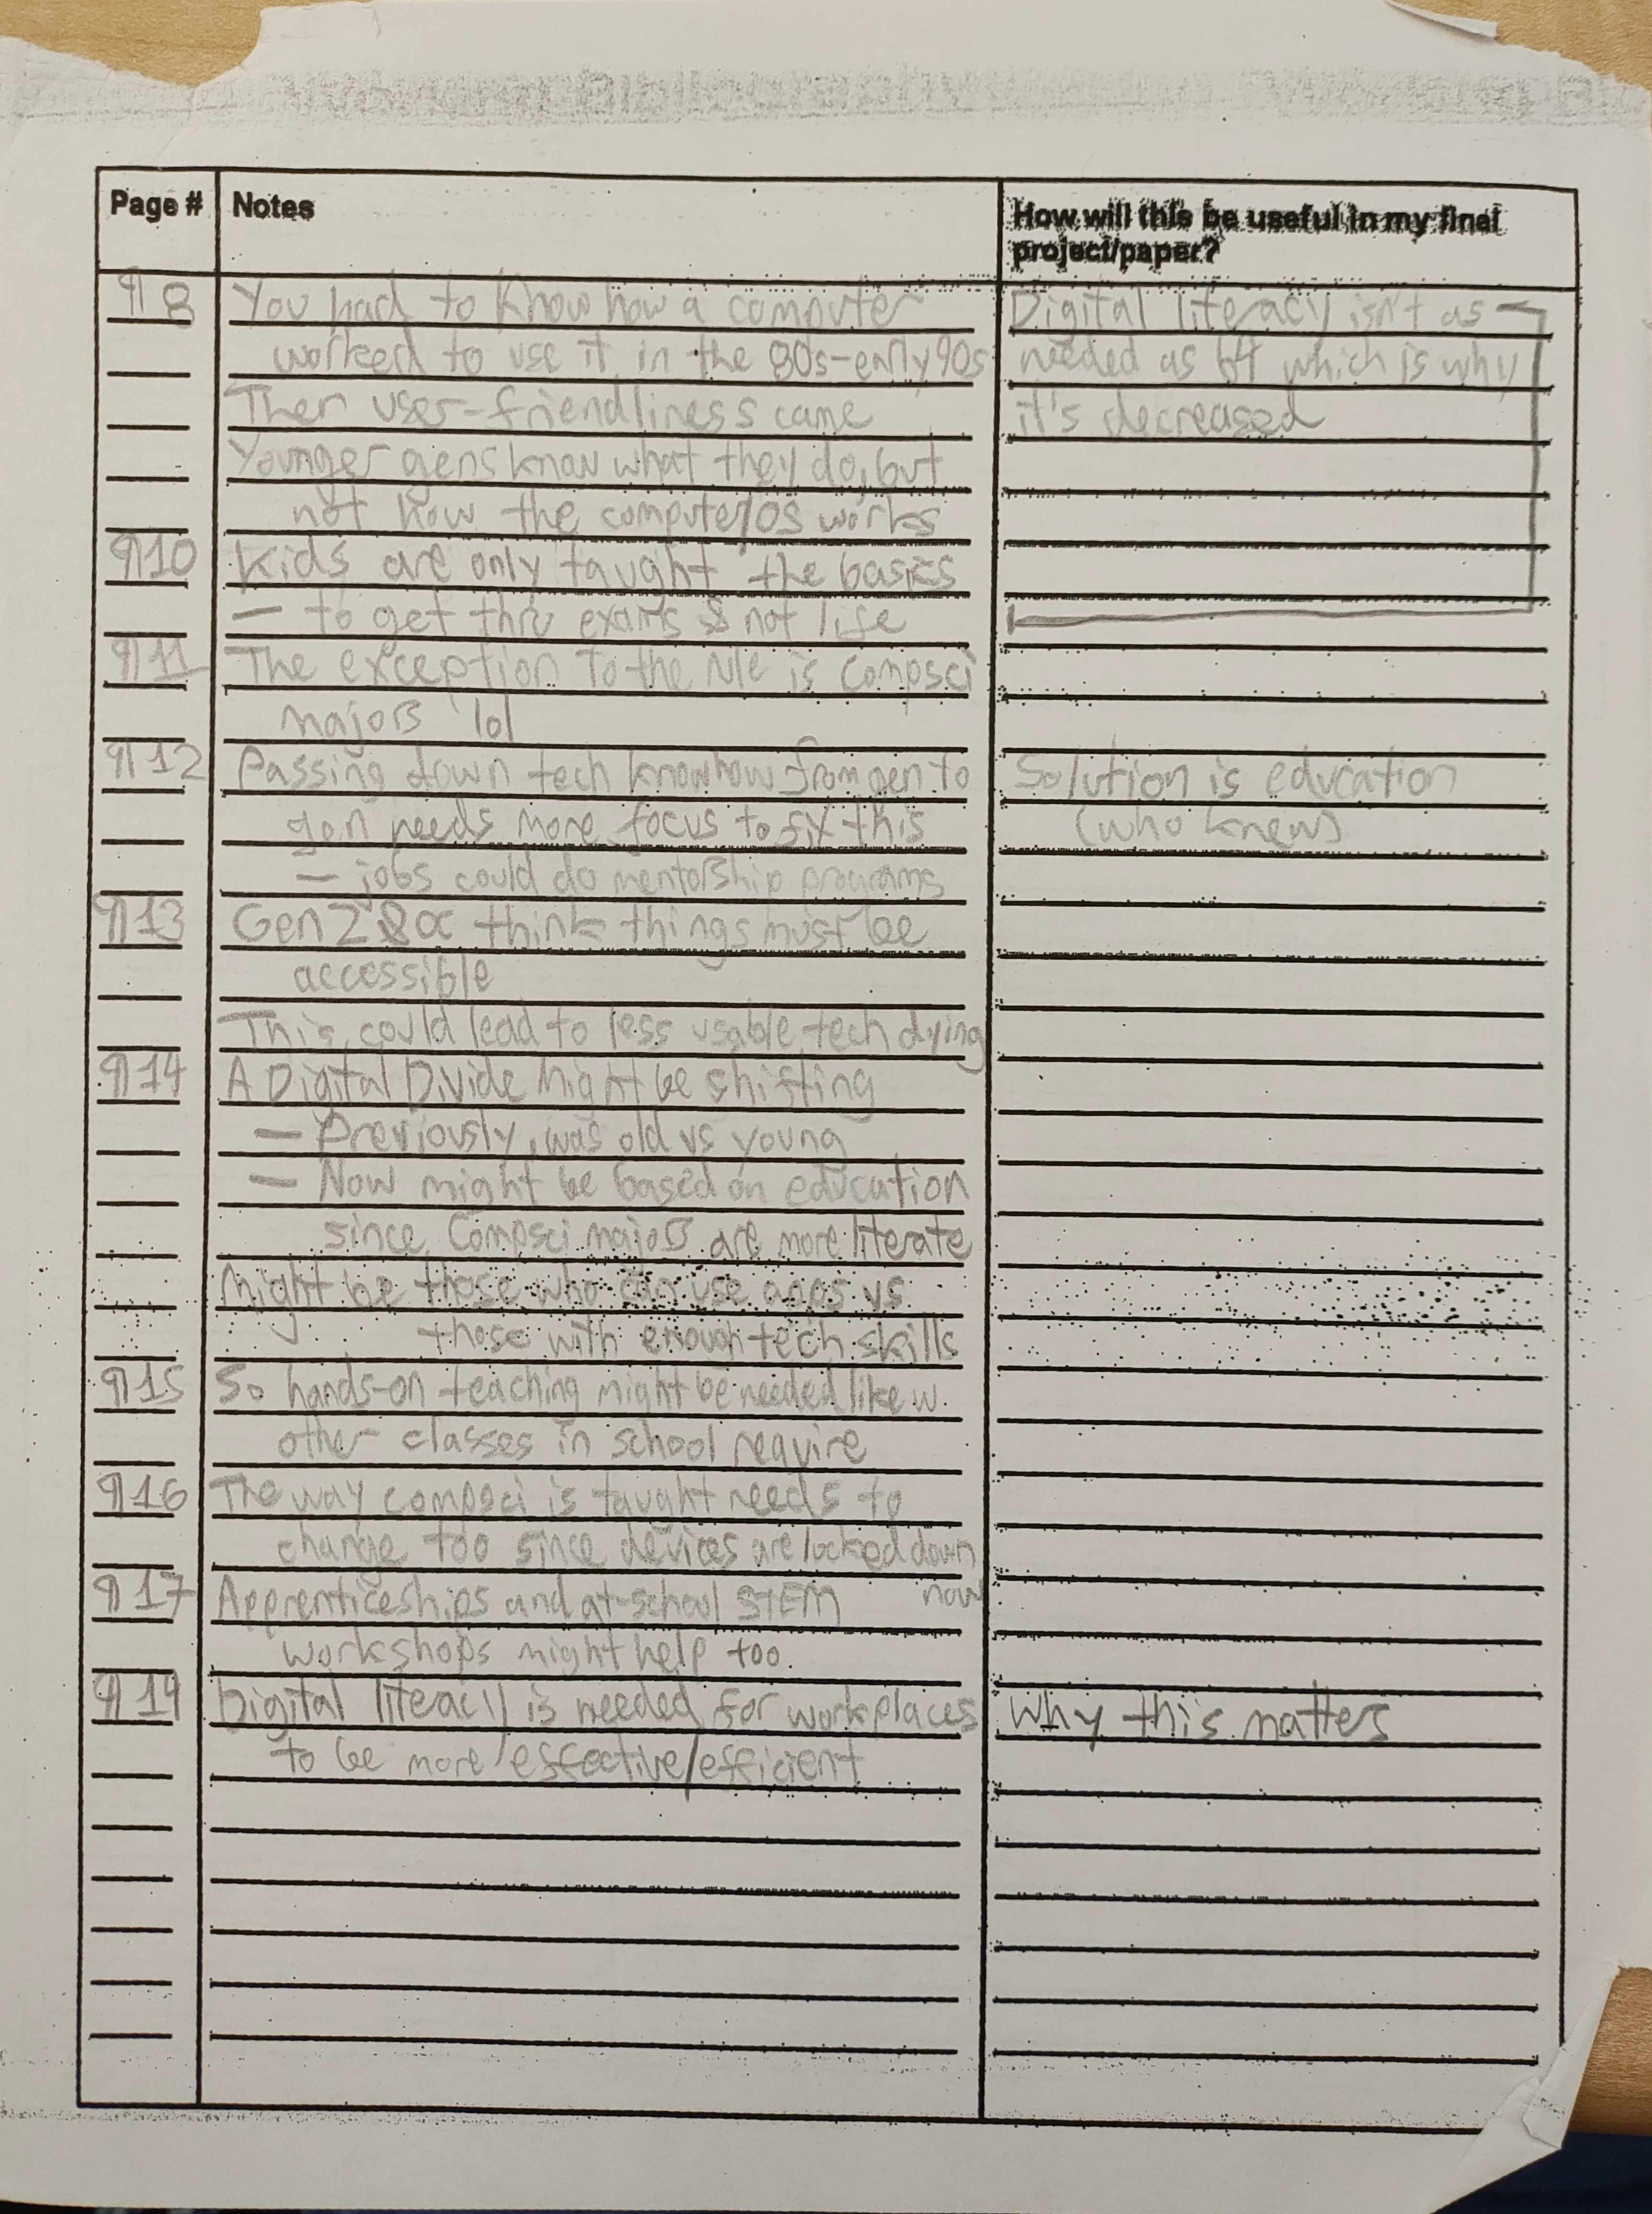 Page #
Notes
How will this be useful in my final
project/paper?
¶8
You had to know how a computer
worked to use it in the 80s-early 90s
Then user-friendliness came
Younger gens know what they do, but
not how the computer/OS works
Digital literacy isn't as
needed as b4 which is why
it's decreased
¶10
Kids are only taught the basics
— to get thru exams & not life
¶11
The exception to the rule is compsci
majors lol
¶12
Passing down tech knowhow from gen to
gen needs more focus to fix this
— jobs could do mentorship programs
Solution is education
(who knew)
¶13
Gen Z & α think things must be
accessible
This could lead to less usable tech dying
¶14
A Digital Divide might be shifting
— Previously, was old vs young
— Now might be based on education
since Compsci majors are more literate
Might be those who can use apps vs
those with enough tech skills
¶15
So hands-on teaching might be needed like w.
other classes in school require
¶16
The way compsci is taught needs to
change too since devices are locked down
now
¶17
Apprenticeships and at-school STEM
workshops might help too.
¶19
Digital literacy is needed for workplaces
to be more effective/efficient
Why this matters